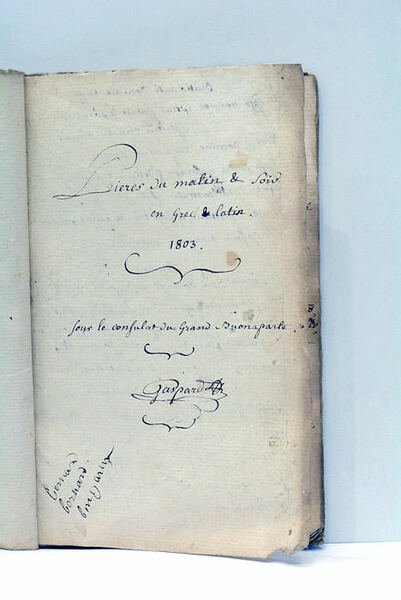 Prieres du matin & soir
en Grec & latin.
1803.
sous le consulat du Grand Buonaparte.
Gaspard
bernard